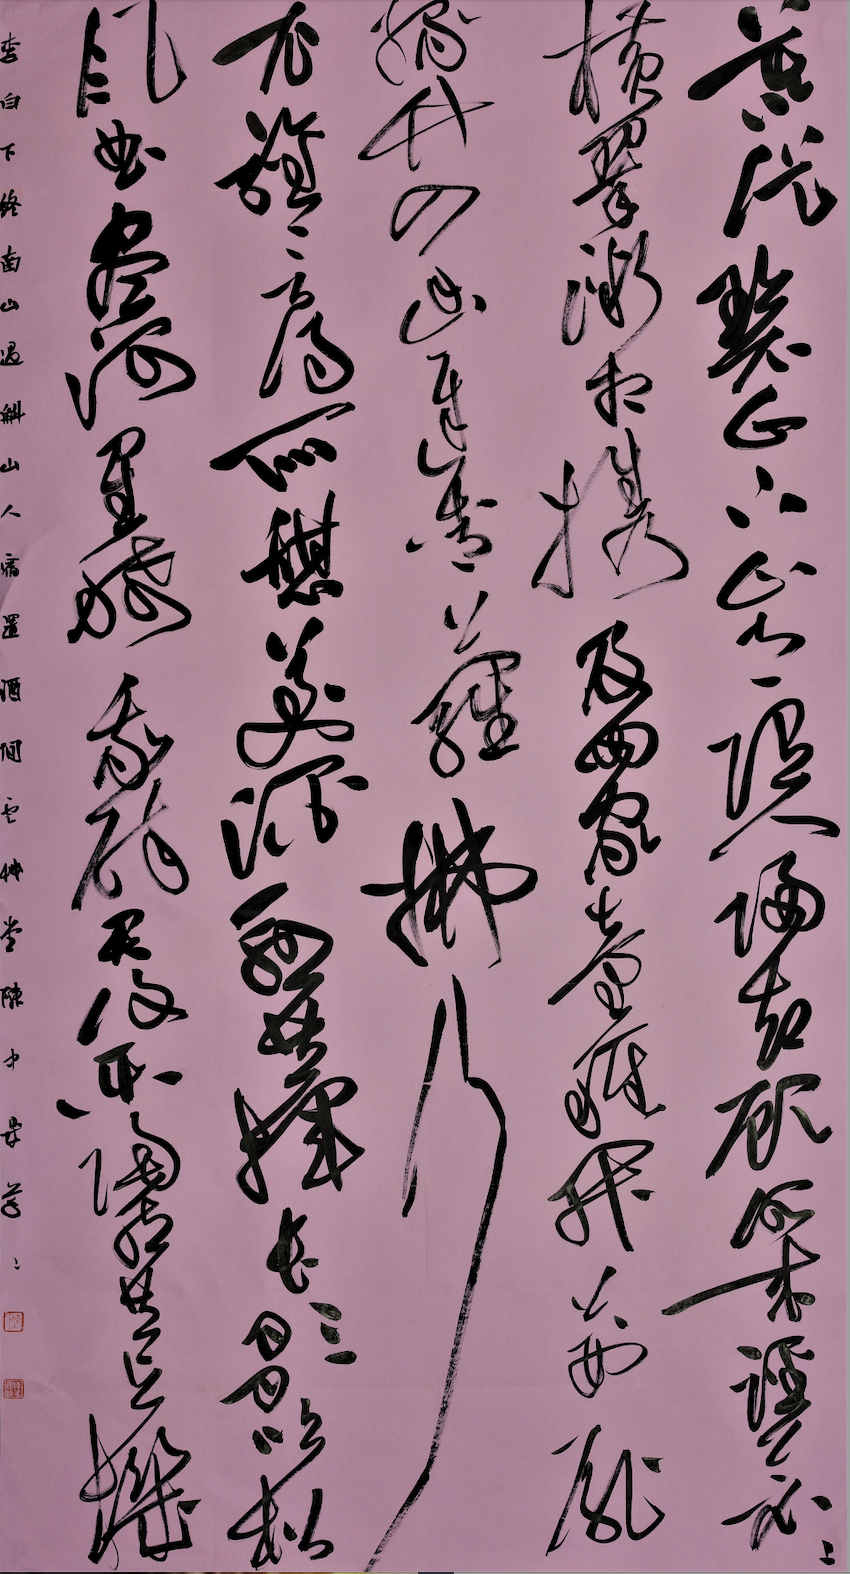 暮從碧山下山月隨人歸却顧所來徑蒼〻
橫翠微相攜及田家童稚開荆扉
綠竹入幽徑青蘿拂行
衣歡言得所憩美酒聊共揮長歌吟松
風曲盡河星稀我醉君復樂陶然共忘機
李白下終南山過斛山人宿置酒閒雲艸堂陳中